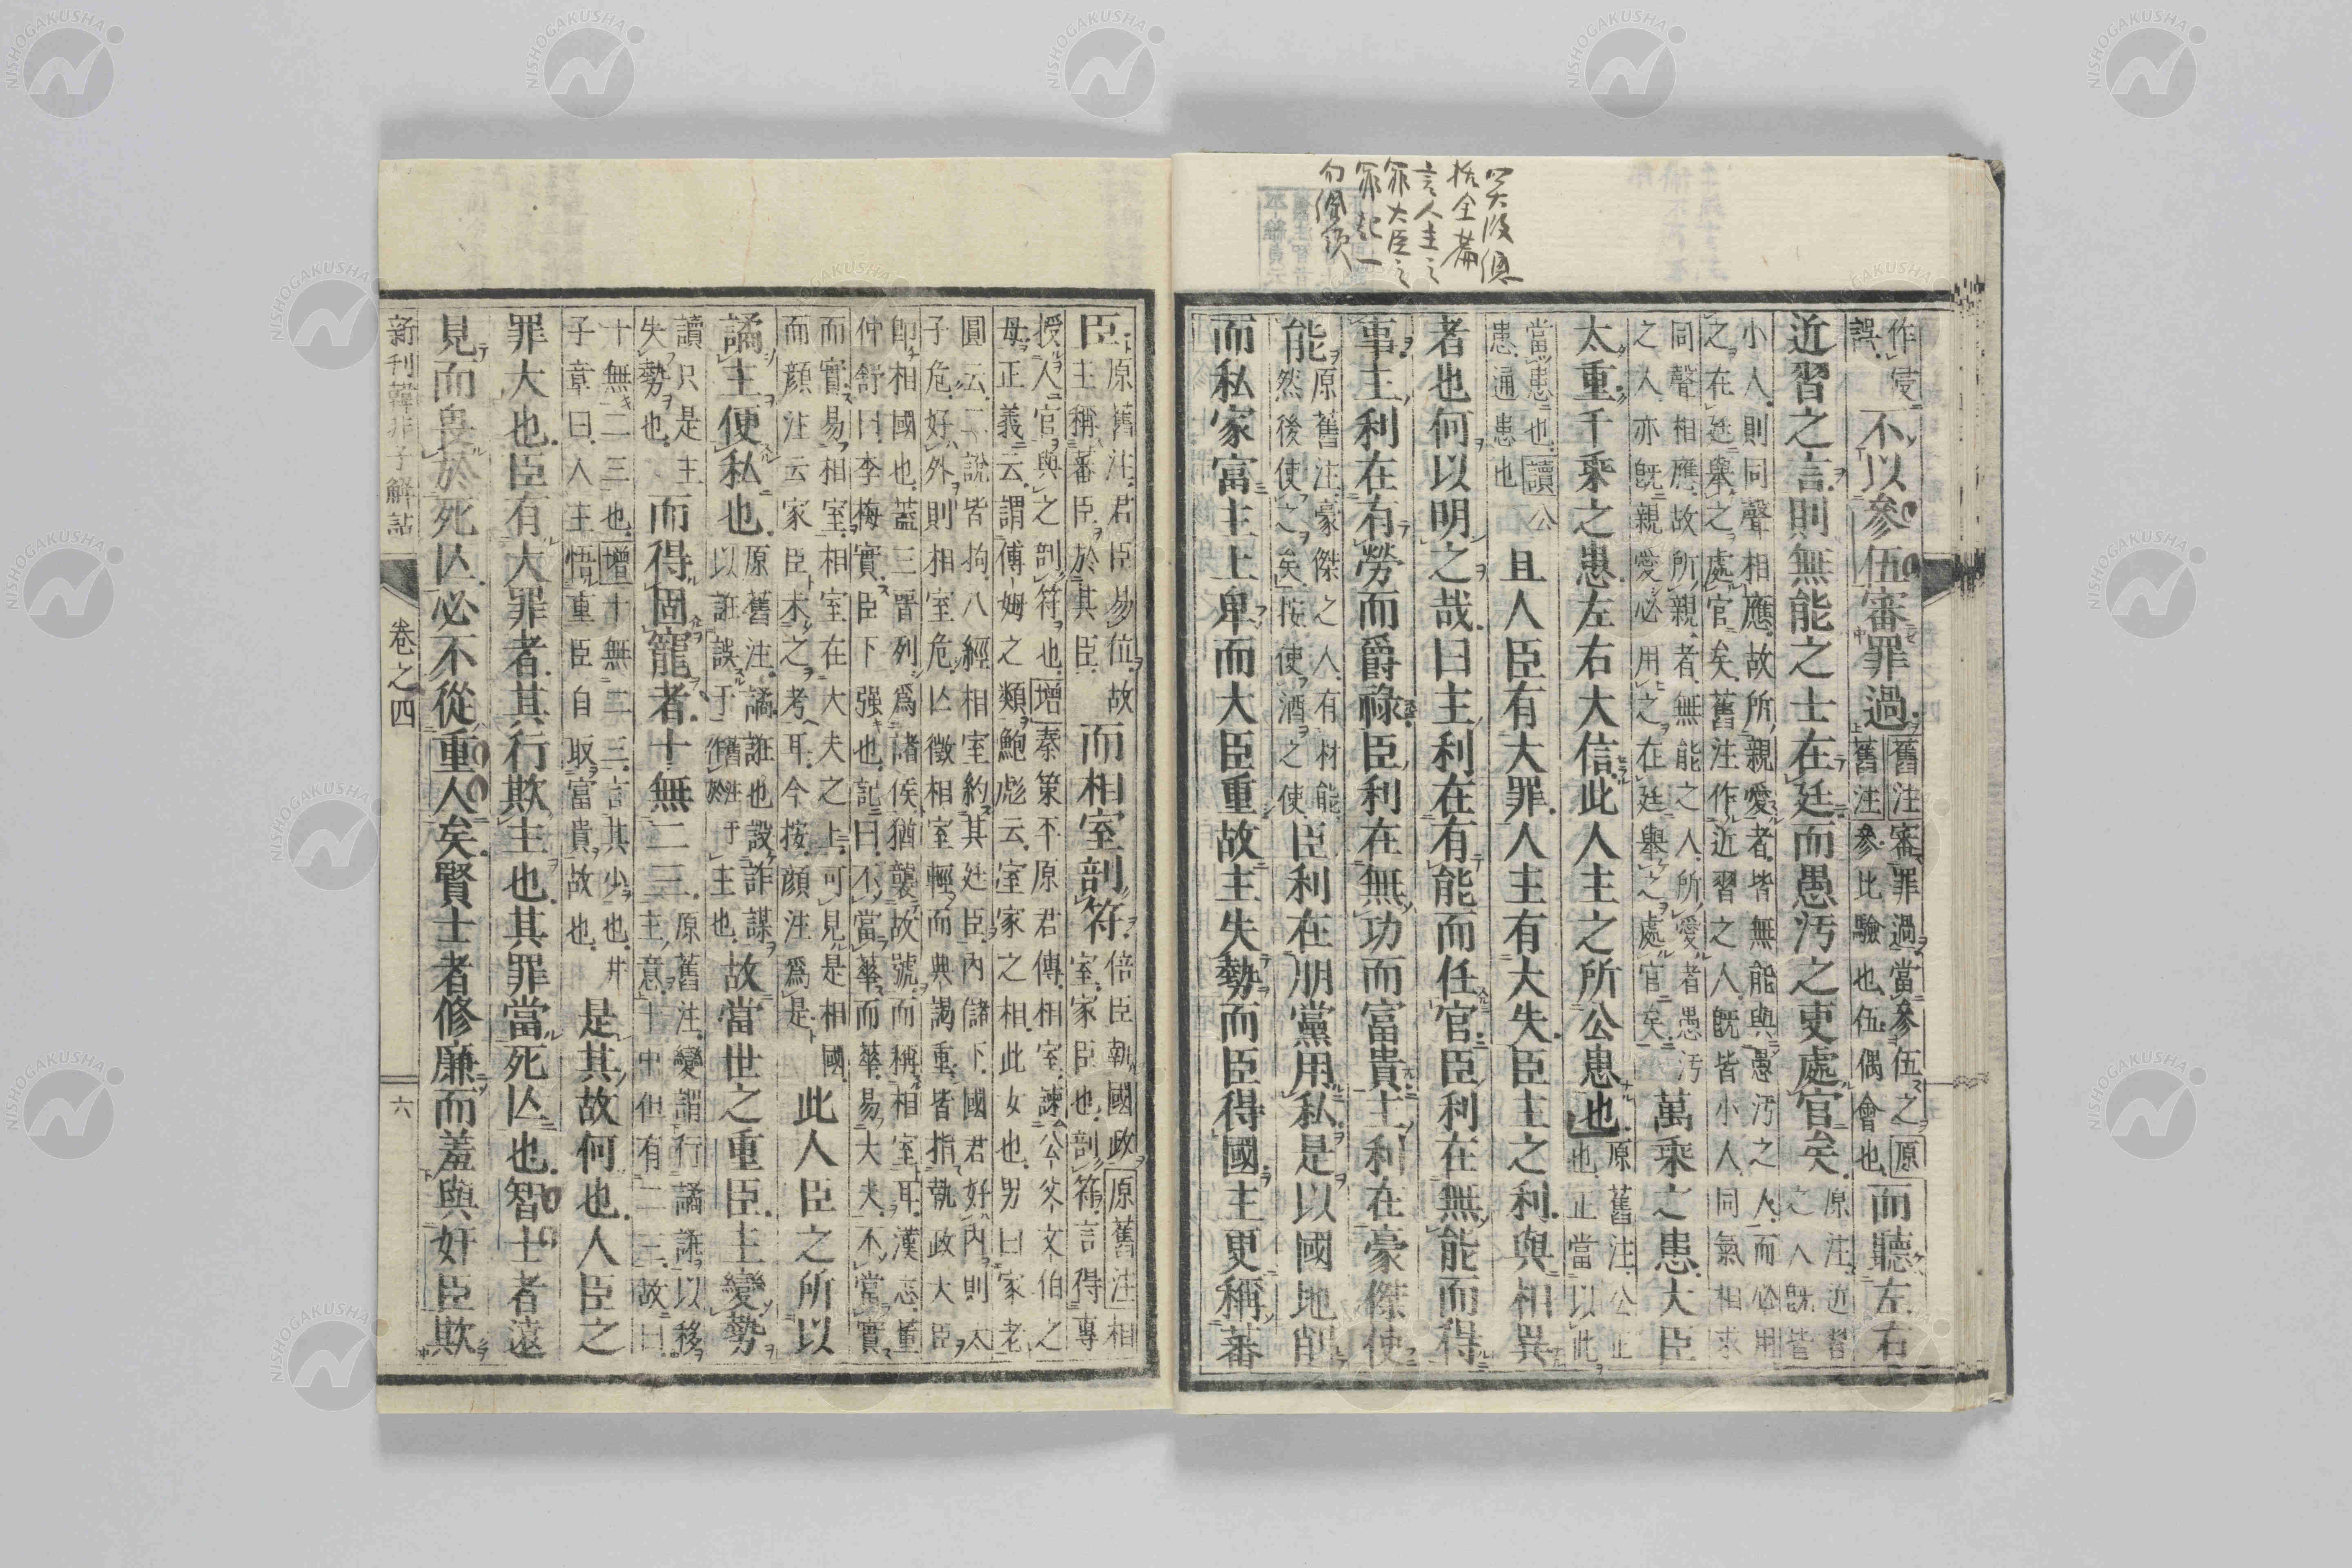 作侵
誤
不以參伍審罪過
舊注審罪過當參伍之原
舊注參比驗也伍偶會也
而聽左右
近習之言則無能之士在廷而愚汚之吏處官矣
原注近習
之人既皆
小人則同聲相應故所親愛者皆無能與愚汚之人而必用
之在廷舉之處官矣舊注作近習之人既皆小人同氣相求
同聲相應故所親者無能之人所愛者愚汚
之人亦既親愛必用之在廷舉之處官矣
萬乘之患大臣
太重千乘之患左右大信此人主之所公患也
原舊注公正
也正當以此
當患也讀公
患通患也
且人臣有大罪人主有大失臣主之利與相異
者也何以明之哉曰主利在有能而任官臣利在無能而得
事主利在有勞而爵祿臣利在無功而富貴主利在豪傑使
能
原舊注豪傑之人有材能
然後使之矣按使酒之使
臣利在朋黨用私是以國地削
而私家富主上卑而大臣重故主失勢而臣得國主更稱蕃
臣
原舊注君臣易位故
主稱蕃臣於其臣
而相室剖符
倍臣執國政原舊注相
室家臣也剖符言得專
授人官與之剖符也增秦策不原君傳相室諫公父文伯之
母正義云謂傅姆之類鮑彪云室家之相此女也男曰家老
圓云二說皆拘八經相室約其廷臣內儲下國君好內則太
子危好外則相室危亡徵相室輕而典謁重皆指執政大臣
卽相國也蓋三晉列爲諸侯猶襲故號而稱相室耳漢志董
仲舒曰李梅實臣下强也記曰不當華而華易大夫不當實
而實易相室相室在大夫之上可見是相國
而顔注云家臣未之考耳今按顔注爲是
此人臣之所以
譎主便私也
原舊注譎誑也設詐謀
以誑誤于舊注于作於主也
故當世之重臣主變勢
讀只是主
失勢也
而得固寵者十無二三
原舊注變謂行譎誑以移
主意十中但有二三故曰
十無二三也增十無二三言其少也井
子章曰人主悟重臣自取富貴故也
是其故何也人臣之
罪大也臣有大罪者其行欺主也其罪當死亡也智士者遠
見而畏於死亡必不從重人矣賢士者修廉而羞與奸臣欺
新刊韓非子解詁
卷之四
六